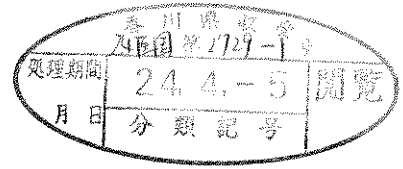 香川県収受
第2729-1号
処理期間
24.4.-5
閲覧
月 日
分類記号